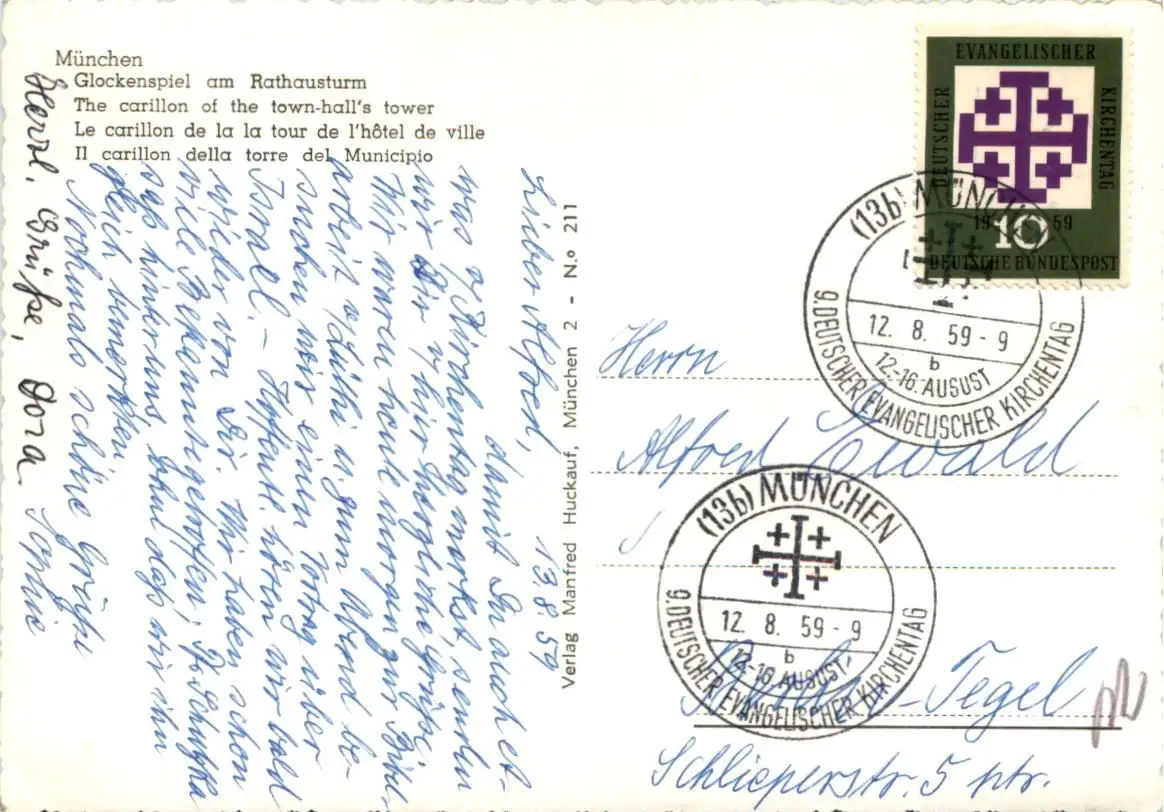 München
Glockenspiel am Rathausturm
The carillon of the town-hall's tower
Le carillon de la la tour de l'hôtel de ville
Il carillon della torre del Municipio
13. 8. 59
Lieber Alfred,
damit Du auch et-
was v/Kirchentag merkst, senden
wir Dir v/hier herzliche Grüße.
Wir waren heute morgen zur Bibel
arbeit v/Lüthi u. zum Abend be-
suchen wir einen Vortrag über
Israel. – Hoffentl. hören wir bald
wieder von Dir. Wir haben schon
viele Bekannte getroffen,
saß hinter uns, ohne daß wir ihn
gleich bemerkten.
Nochmals schöne Grüße
Herzl. Grüße, Dora
Verlag Manfred Huckauf, München 2 - N.º 211
EVANGELISCHER
DEUTSCHER
KIRCHENTAG
1959
10
DEUTSCHE BUNDESPOST
(13b) MÜNCHEN
12. 8. 59 - 9
b
12.-16. AUGUST
9. DEUTSCHER EVANGELISCHER KIRCHENTAG
Herrn
Alfred Ewald
(13b) MÜNCHEN
12. 8. 59 - 9
b
12.-16. AUGUST
9. DEUTSCHER EVANGELISCHER KIRCHENTAG
Berlin-Tegel
Schlieperstr. 5 ptr.